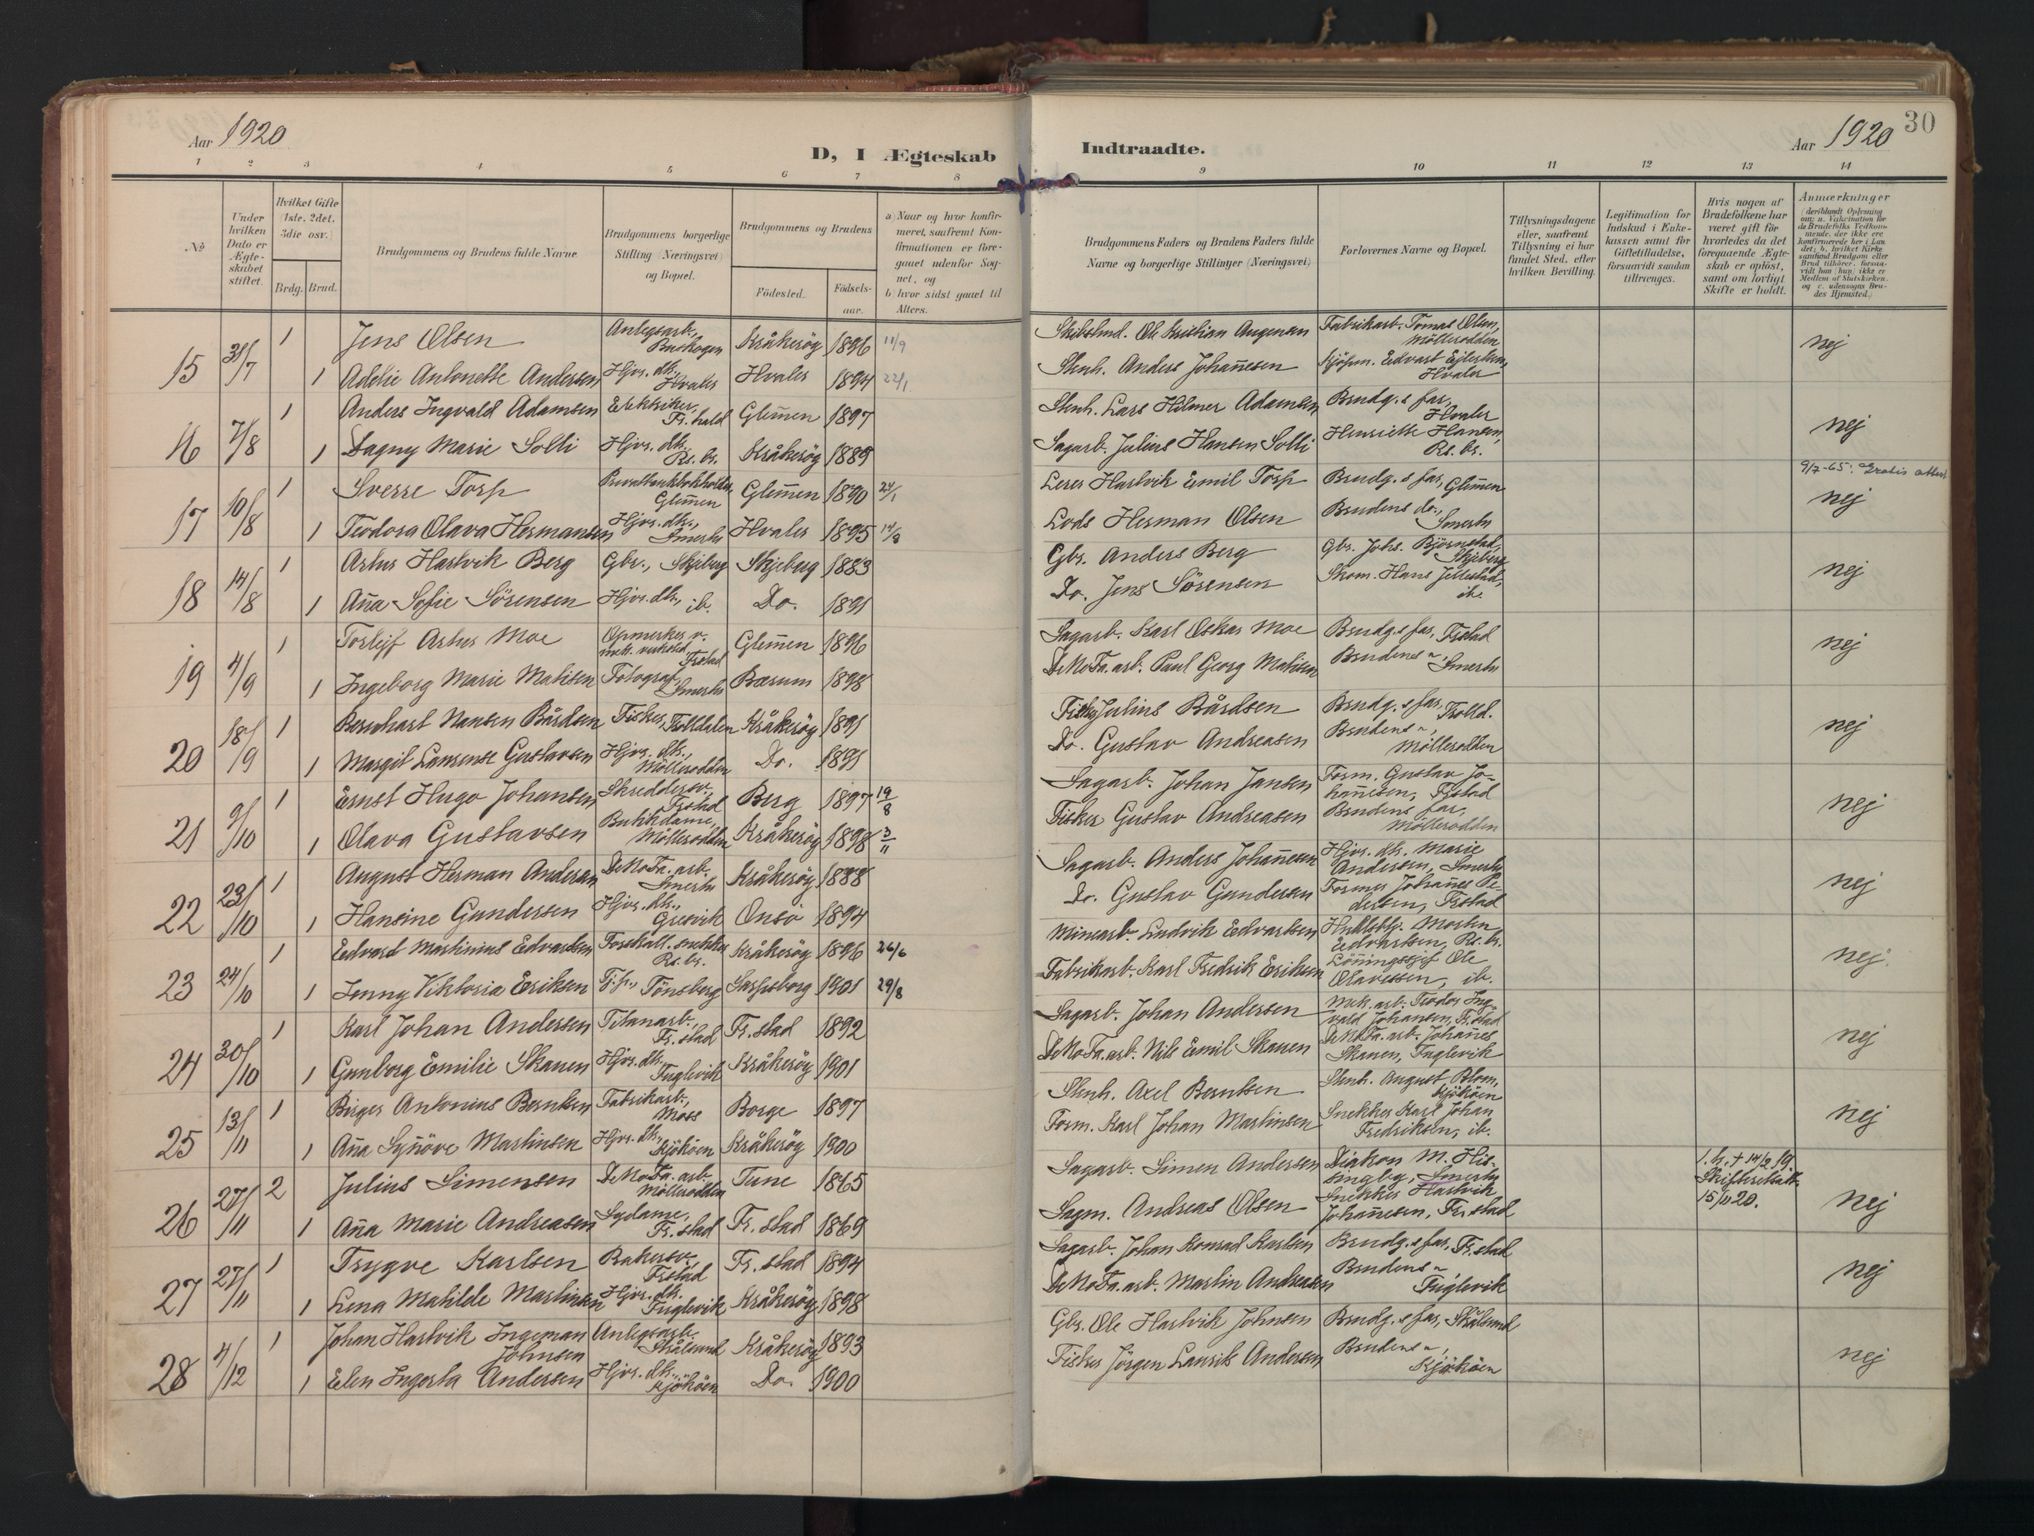 Aar 1920
D, I Ægteskab
Indtraadte.
Aar 1920
30
1 2 3 4 5 6 7 8 9 10 11 12 13 14
No
Under hvilken Dato er Ægteskabet stiftet.
Hvilket Gifte (1ste. 2det. 3die osv.)
Brdg. Brud.
Brudgommens og Brudens fulde Navne.
Brudgommens borgerlige Stilling (Næringsvei) og Bopæl.
Brudgommens og Brudens
Fødested.
Fødsels-aar.
a) Naar og hvor konfirmeret, saafremt Konfirmationen er foregaaet udenfor Sognet, og
b) hvor sidst gaaet til Alters.
Brudgommens Faders og Brudens Faders fulde Navne og borgerlige Stillinger (Næringsvei)
Forlovernes Navne og Bopæl.
Tillysningsdagene eller, saafremt Tillysning ei har fundet Sted, efter hvilken Bevilling.
Legitimation for Indskud i Enkekassen samt for Giftetilladelse, forsaavidt saadan tiltrænges.
Hvis nogen af Brudefolkene har været gift før hvorledes da det foregaaende Ægteskab er opløst, samt om lovligt Skifte er holdt.
Anmærkninger
15 31/7 1 Jens Olsen Anlegsarb., Buskogen Kråkeröy 1896 11/9 Skibstmd. Ole Kristian Augensen Fabrikarb. Tomas Olsen, Möllerodden nej
1 Adelie Antonette Andersen Hjvs. dtr., Hvaler Hvaler 1894 22/1 Stenh. Anders Johañesen Kjöpm. Edvart Ejlertsen, Hvaler
16 7/8 1 Anders Ingvald Adamsen Elektriker, Fr.hald Glem̄en 1897 Stenh. Lars Hilmer Adamsen Brudg.s far, Hvaler nej
1 Dagny Marie Solli Hjvs. dtr. Rs. br. Kråkeröy 1889 Sagarb. Julius Hansen Solli Henriette Hansen, Rs. br.
9/7-65: Gratis attest
17 10/8 1 Sverre Torp Privatbankbokholder, Glem̄en Glem̄en 1890 24/1 Lerer Hartvik Emil Torp Brudg.s far, Glem̄en nej
1 Teodora Olava Hermansen Hjvs. dtr., Smertu Hvaler 1895 Lods Herman Olsen Brudens do., Smertu
18 14/8 1 Artur Hartvik Berg Gbr., Skjeberg Skjeberg 1883 Gbr. Anders Berg Gbr. Johs. Björnstad, Skjeberg nej
1 Aña Sofie Sörensen Hjvs. dtr., ib. Do. 1891 Do. Jens Sörensen Skom. Hans Jellestad, ib.
19 4/9 1 Torlejf Artur Moe Opmerker v. mek. verksted, Frstad Glem̄en 1896 Sagarb. Karl Oskar Moe Brudg.s far, Frstad nej
1 Ingeborg Marie Matisen Fotograf, Smertu Bærum 1898 DeNoFa.arb. Paul Georg Matisen Brudens ", Smertu
20 18/9 1 Bernhart Nansen Bårdsen Fisker, Trolldalen Kråkeröy 1891 Fisker Julius Bårdsen Brudg.s far, Trolld. nej
1 Margit Laurense Gustavsen Hjvs. dtr., Möllerodden Do. 1891 Do. Gustav Andreasen Brudens ", Möllerodden
21 9/10 1 Ernst Hugo Johansen Skreddersv., Frstad Berg 1897 19/8 Sagarb. Johan Jansen Form. Gustav Johañesen, Frstad nej
1 Olava Gustavsen Butikdame, Möllerodden Kråkeröy 1898 3/11 Fisker Gustav Andreasen Brudens far, Möllerodden
22 23/10 1 August Herman Andersen DeNoFa. arb. Smertu Kråkeröy 1888 Sagarb. Anders Johañesen Hjvs. dtr. Marie Andersen, Smertu nej
1 Hansine Gundersen Hjvs. dtr., Gresvik Onsö 1894 Do. Gustav Gundersen Former Johañes Pedersen, Frstad
23 24/10 1 Edvard Martinius Edvardsen Forskall. snekker Rs. br. Kråkeröy 1896 26/6 Minearb. Ludvik Edvartsen Morten Edvartsen, Rs. br. nej.
1 Jenny Viktoria Eriksen Tj.p., Tönsberg Sarpsborg 1901 29/8 Fabrikarb. Karl Fredrik Eriksen Lönningssjef Ole Olavessen, ib.
24 30/10 1 Karl Johan Andersen Titanarb., Fr.stad Fr.stad 1892 Sagarb. Johan Andersen Mek. arb. Teodor Ingvald Johansen, Fr.stad nej
1 Gunborg Emilie Skauen Hjvs. dtr., Fuglevik Kråkeröy 1901 DeNoFa.arb. Nils Emil Skauen DeNoFa. arb. Johañes Skauen, Fuglevik
25 13/11 1 Birger Antonius Berntsen Fabrikarb., Moss Borge 1897 Stenh. Axel Berntsen Stenh. August Blom, Kjököen nej
1 Aña Syñöve Martinsen Hjvs. dtr., Kjököen Kråkeröy 1900 Form. Karl Johan Martinsen Snekker Karl Johan Fredriksen, ib.
26 27/11 2 Julius Simensen DeNoFa. arb. Möllerodden Tune 1865 Sagarb. Simen Andersen Diakon M. Hissingby, Smertu 1. h. + 14/2 19. Skifteretsatt. 15/11 20. nej
1 Aña Marie Andreasen Sydame, Fr.stad Fr.stad 1869 Sagm. Andreas Olsen Snekker Hartvik Johañesen, Fr.stad
27 27/11 1 Trygve Karlsen Bakersv., Frstad Fr.stad 1894 Sagarb. Johan Konrad Karlsen Brudg.s far, Fr.stad nej
1 Lena Matilde Martinsen Hjvs. dtr. Fuglevik Kråkeröy 1898 DeNoFa.arb. Martin Andreasen Brudens " Fuglevik
28 4/12 1 Johan Hartvik Ingeman Johnsen Anlegsarb. Skålsund Kråkeröy 1893 Gbr. Ole Hartvik Johnsen Brudg.s far, Skålsund nej
1 Elen Ingerta Andersen Hjvs. dtr., Kjököen Do. 1900 Fisker Jörgen Laurits Andersen Brudens ", Kjököen